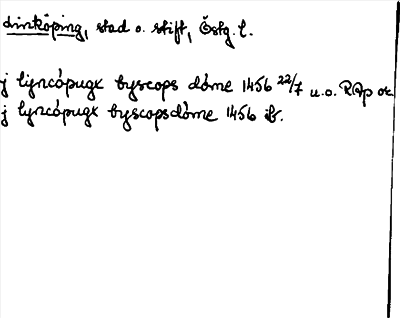 Linköping, stad o. stift, Östg. l.
j lijncópugx byscops dóme 1456 22/7 u.o. RAp or.
j lyncópugx byscopsdóme 1456 ib.